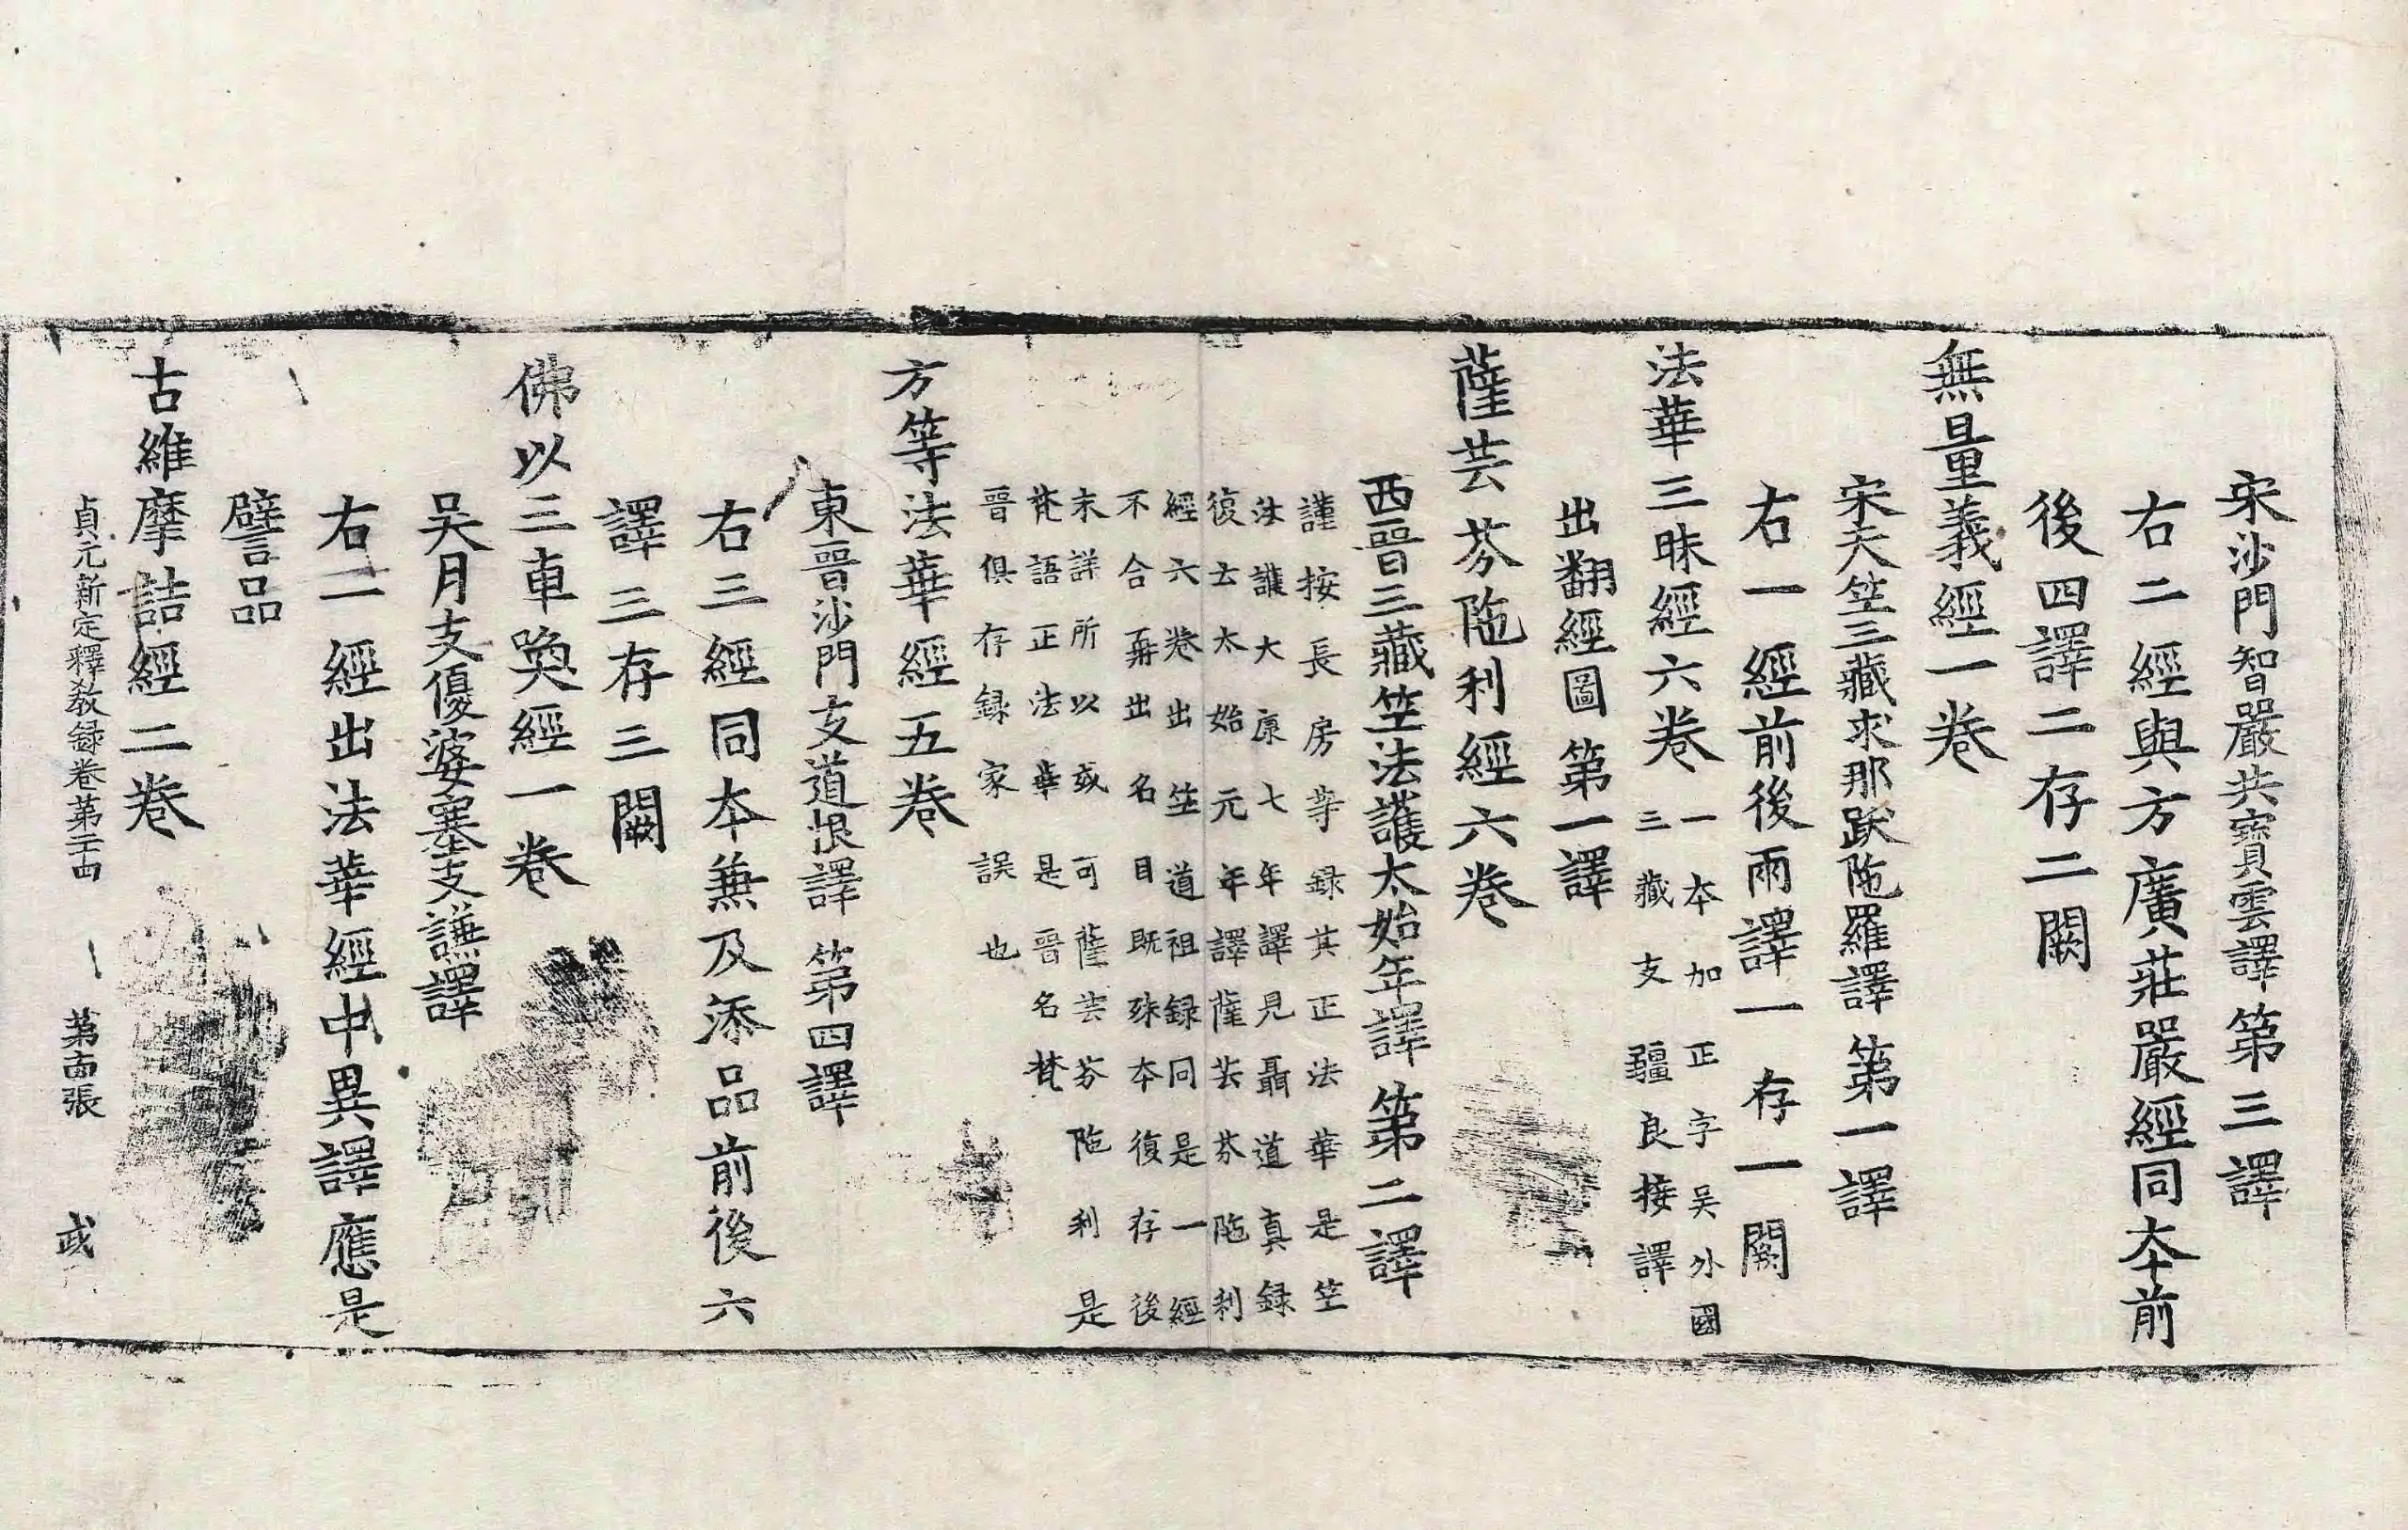 宋沙門智嚴共寶雲譯第三譯
右二經與方廣莊嚴經同本前
後四譯二存二闕
無量義經一卷
宋天竺三藏求那跋陁羅譯第一譯
右一經前後兩譯一存一闕
法華三昧經六卷
一本加正字吳外國
三藏支彊良接譯
出翻經圖第一譯
薩芸芬陁利經六卷
西晉三藏竺法護太始年譯第二譯
謹按長房等録其正法華是竺
法護大康七年譯見聶道真録
復士太始元年譯薩芸芬陁利
經六卷出竺道祖録同是一經
不合再出名目旣殊本復存後
末詳所以或可薩芸芬陁利是
梵語正法華是晉名梵
晉俱存録家誤也
方等法華經五卷
東晉沙門支道恨譯第四譯
右三經同本兼及添品前後六
譯三存三闕
佛以三車喚經一卷
吳月支優婆塞支謙譯
右一經出法華經中異譯應是
譬品
古維摩詰經二卷
貞元新定釋教録卷第二十四 第十四張 武